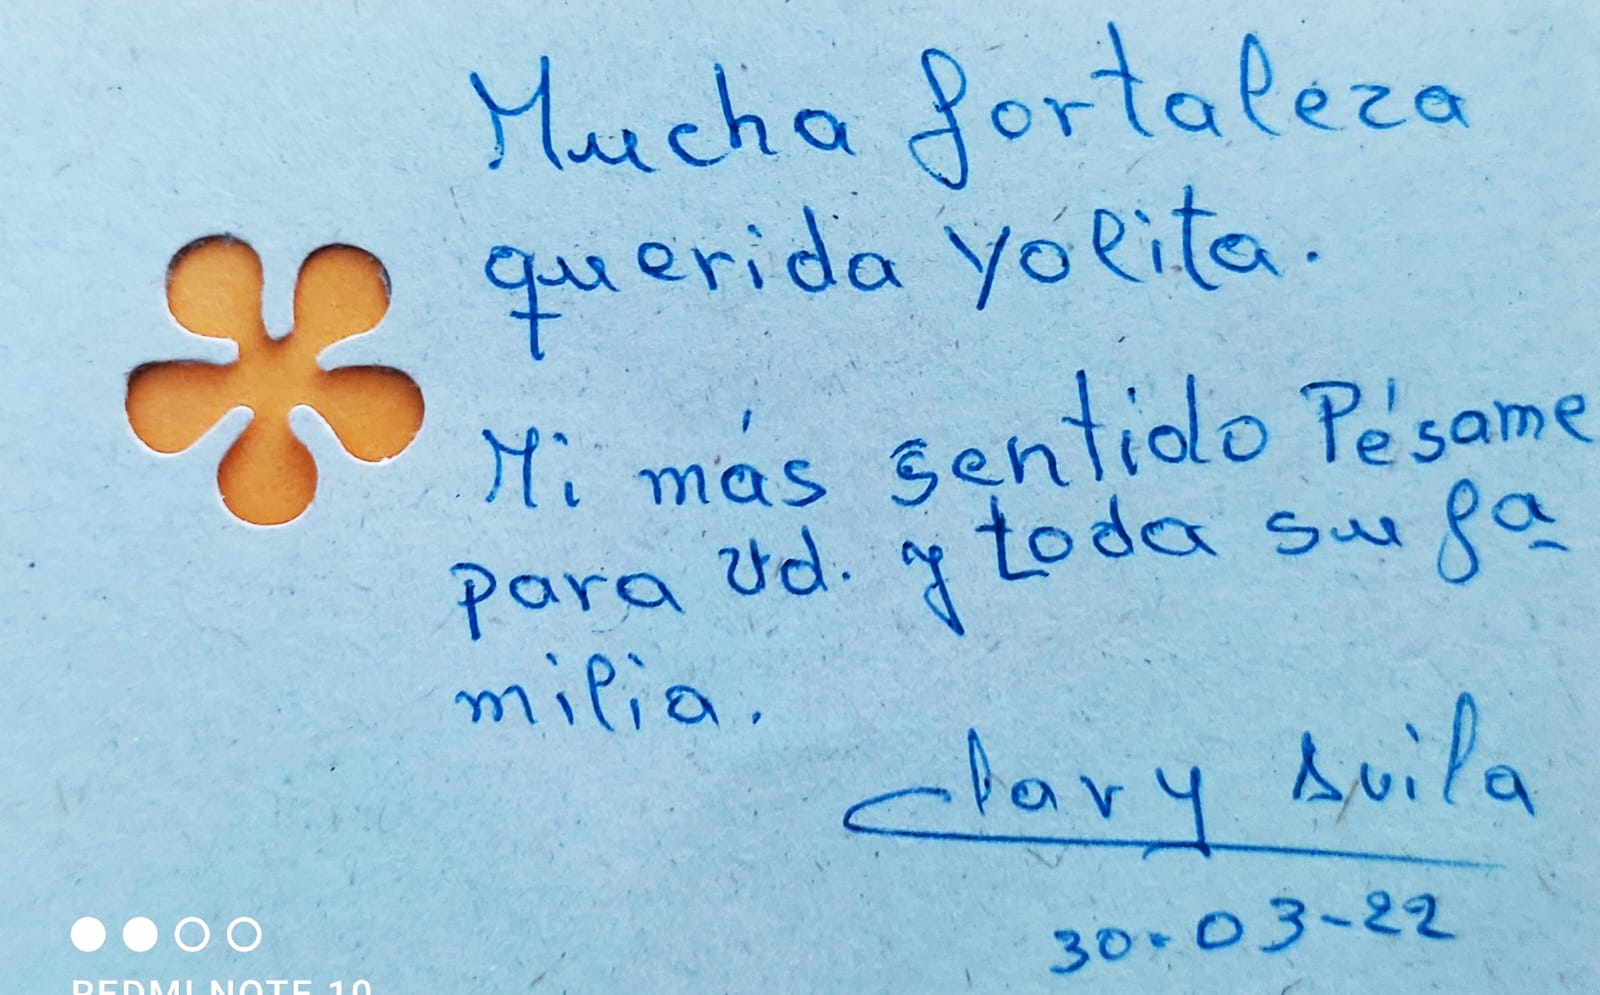 Mucha fortaleza
querida Yolita.
Mi más sentido Pésame
para Ud. y toda su fa
milia.
Clary Avila
30-03-22
REDMI NOTE 10